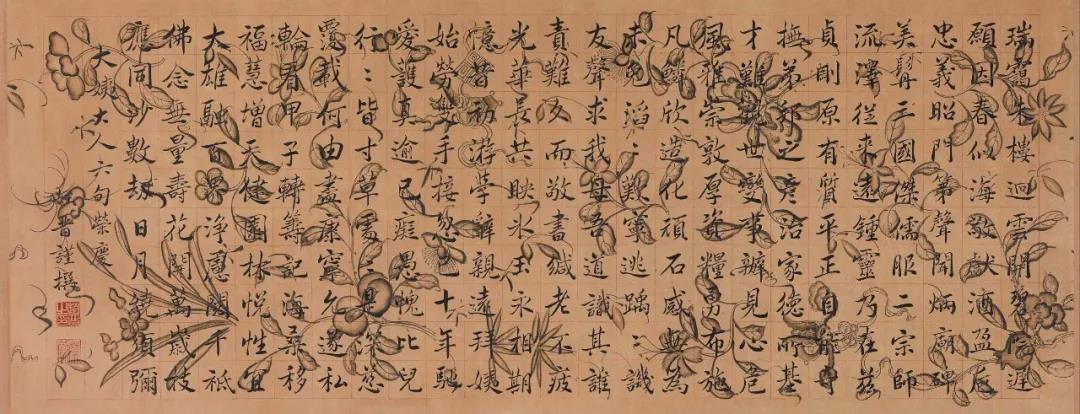 瑞靄朱樓迥雲開碧院遲
願因春似海敬獻酒盈卮
忠義昭門第聲聞炳廟碑
美髯三國傑儒服二宗師
流澤從來遠鍾靈乃在茲
貞則原有質平正自能
撫弟鄰之彥治家德所基
才難世變事辦見心危
風雅崇敦厚資糧勇布施
凡鱗欣造化頑石感無為
未免滔〻歎寧逃踽〻譏
友聲求我母吾道識其誰
責難久而敬書緘老不疲
光華長共映冰玉永相期
憶昔初游學辭親遠拜姨
始勞雙手接忽〻十年馳
愛護真逾己癡愚愧比兒
行〻皆寸草處〻是深慈
覆載何由盡康寧允遂私
輪看甲子轉籌記海桑移
福慧增天健園林悅性宜
大雄融百界淨慮閱千祇
佛念無量壽花開萬歲枝
應同沙數劫日月繞須彌
大姨大人六旬榮慶
晉謹撰